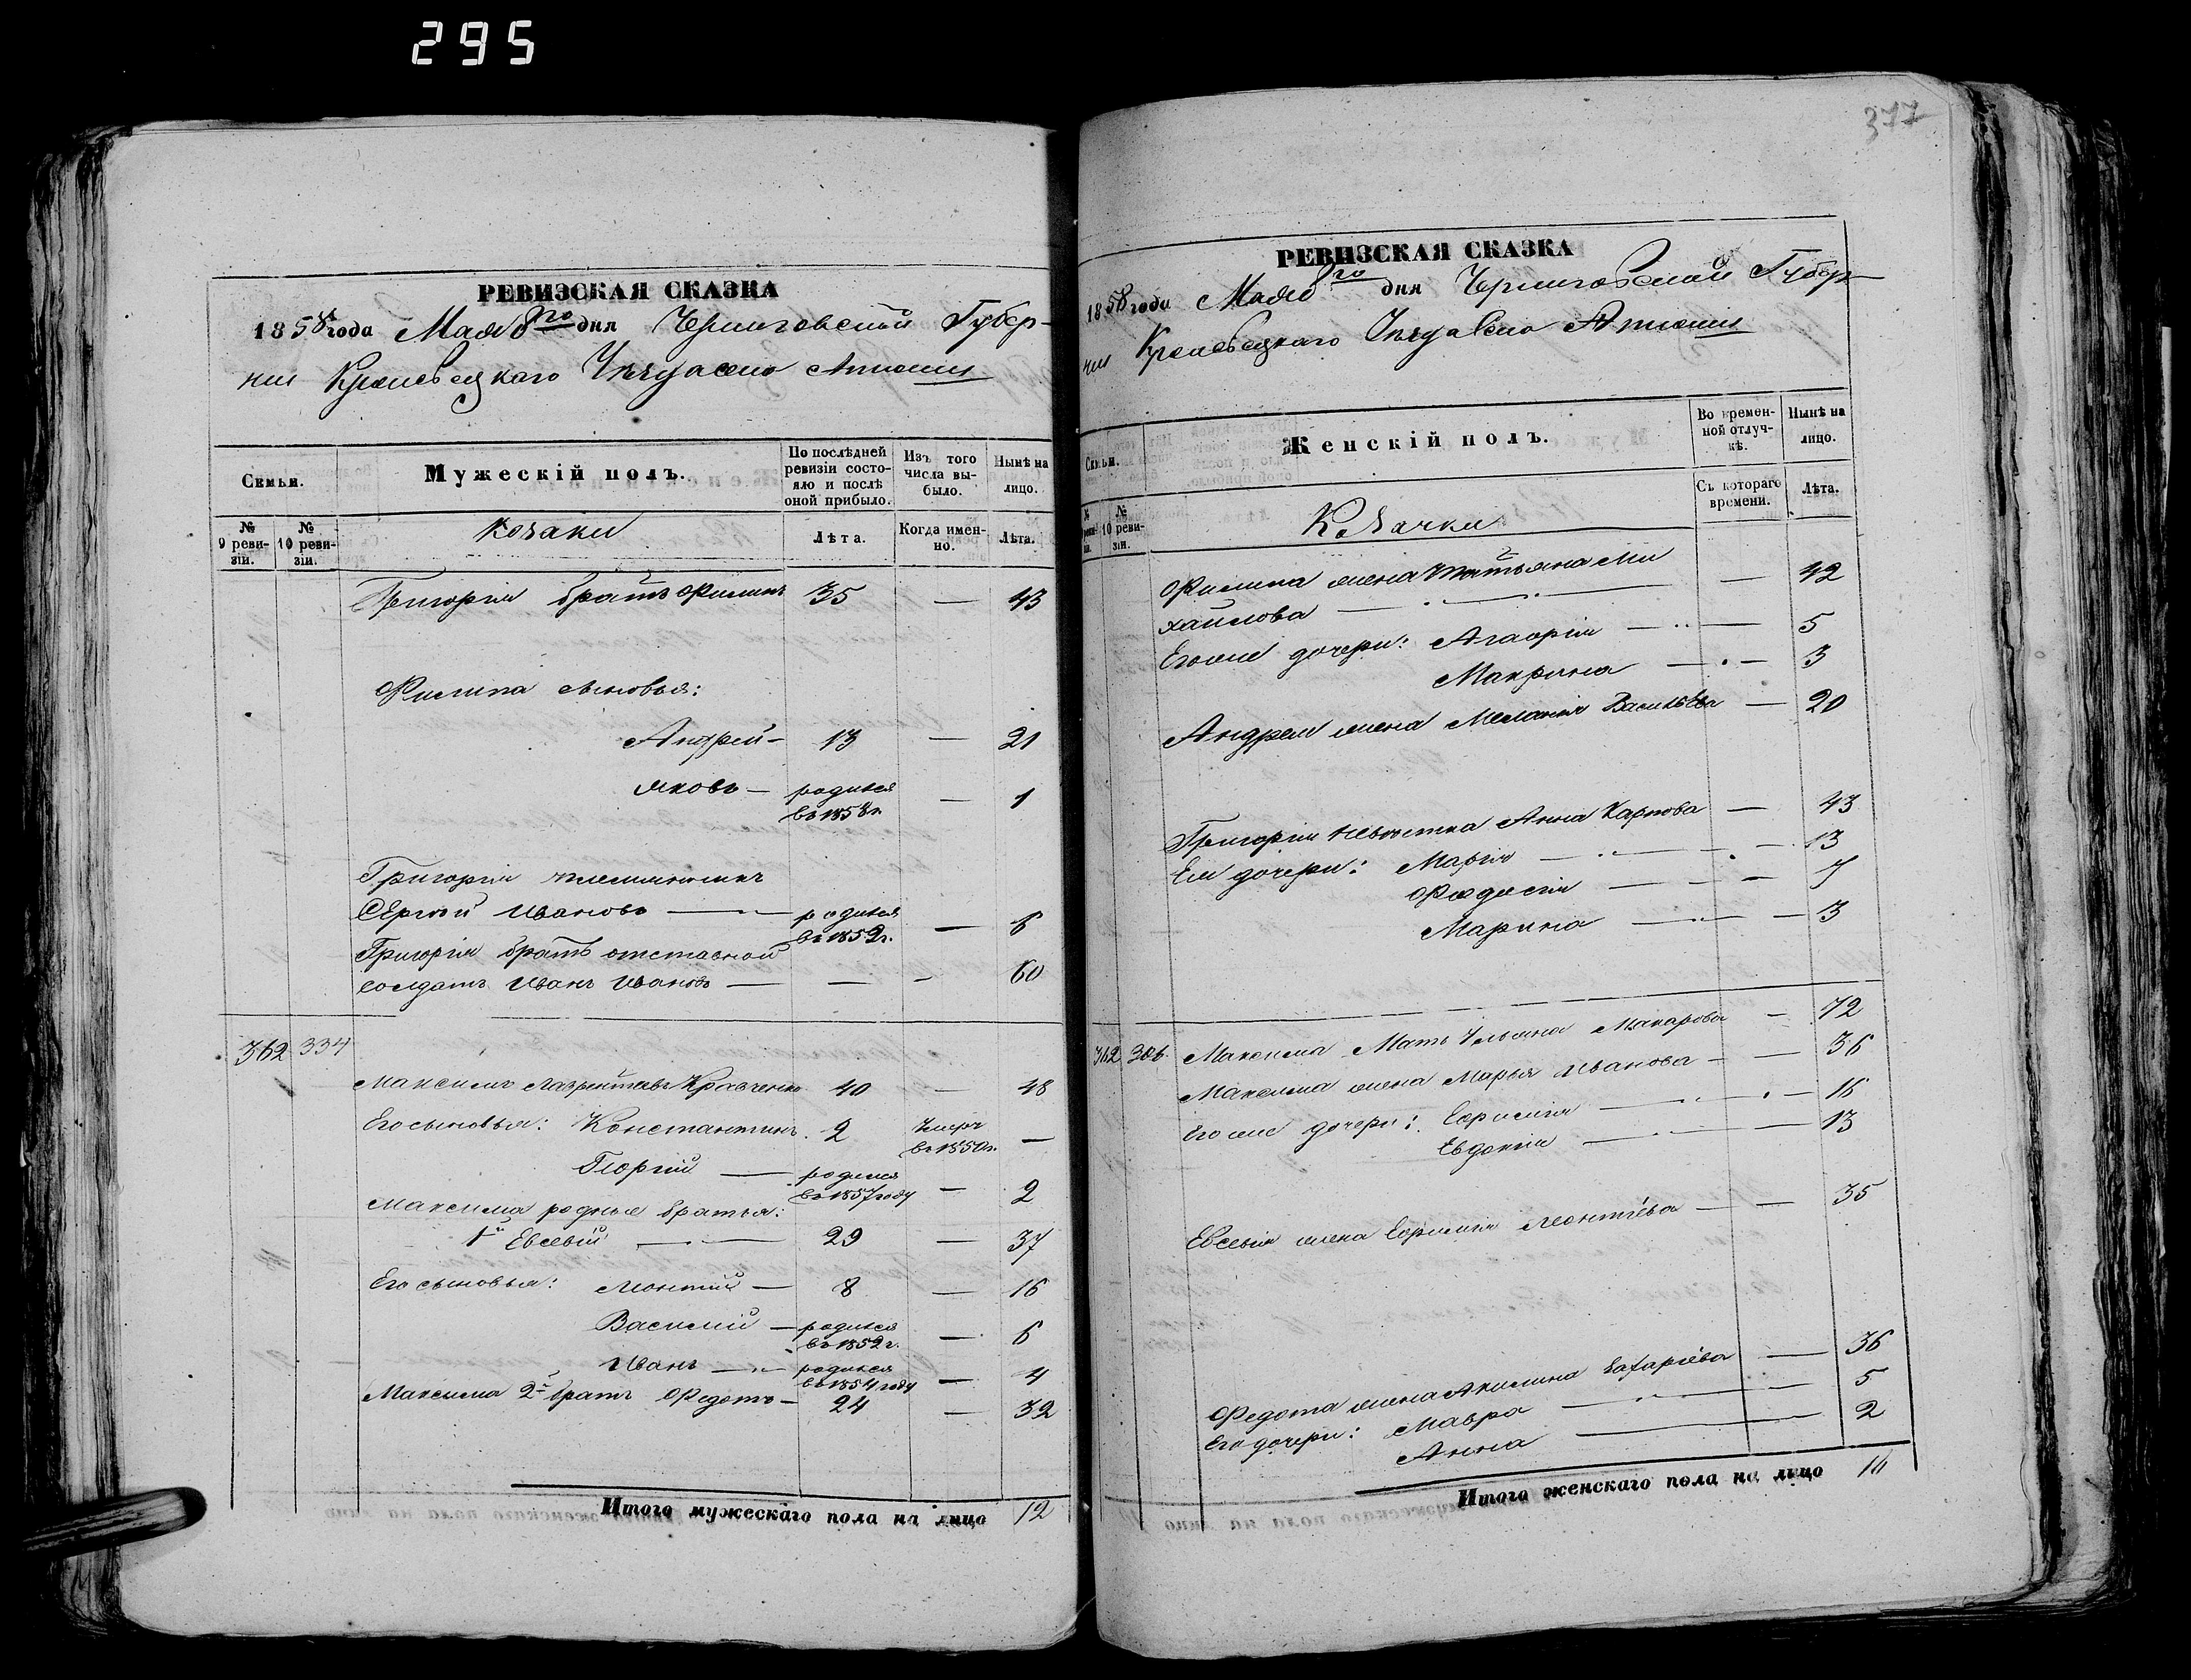 295
377
РЕВИЗСКАЯ СКАЗКА
1858 года Мая 8го дня Черниговской Губер-
нии Кролевецкаго Уѣзда село Атюши
Семьи.
Мужескій полъ.
По послѣдней ревизіи состо-
яло и послѣ оной прибыло.
Изъ того числа вы-
было.
Нынѣ на лицо.
№ 9 реви-
зіи.
№ 10 реви-
зіи.
Козаки
Лѣта.
Когда имен-
но.
Лѣта.
Григорія братъ Филипъ 35 — 43
Филипа сыновья:
Андрей — 13 — 21
Яковъ — родился — 1
въ 1858 г.
Григорія племянникъ
Сергѣй Ивановъ — родился — 6
въ 1852 г.
Григорія братъ отставной
солдатъ Иванъ Ивановъ — — — 60
362 334
Максимъ Лаврентіевъ Кравченко 40 — 48
Его сыновья: Константинъ 2 Умеръ —
въ 1850 г.
Георгій — родился — 2
въ 1857 году
Максима родные братья:
1й Евсевій — 29 — 37
Его сыновья: Леонтій — 8 — 16
Василий — родился — 6
въ 1852 г.
Иванъ — родился — 4
въ 1854 году
Максима 2й братъ Федотъ — 24 — 32
Итого мужескаго пола на лицо 12
РЕВИЗСКАЯ СКАЗКА
1858 года Мая 8го дня Черниговской Губер-
нии Кролевецкаго Уѣзда Село Атюши
Семьи.
Женскій полъ.
Во времен-
ной отлуч-
кѣ.
Нынѣ на лицо.
№ 10 реви-
зіи.
Козачки
Съ котораго времени.
Лѣта.
Филипа жена Татьяна Ми — 42
хайлова
Его же дочери: Агафія — 5
Макрина — 3
Андрея жена Меланія Васильева — 20
Григорія невѣстка Анна Карпова — 43
Ея дочери: Марія — 13
Феодосія — 7
Марина — 3
362 306. Максима Мать Ульяна Макарова — 72
Максима жена Марья Иванова — 36
Его же дочери: Ефимія — 16
Евдокія — 13
Евсевія жена Ефимія Леонтіева — 35
Федота жена Акилина Захаріева — 36
Его дочери: Мавра — 5
Анна — 2
Итого женскаго пола на лицо 16